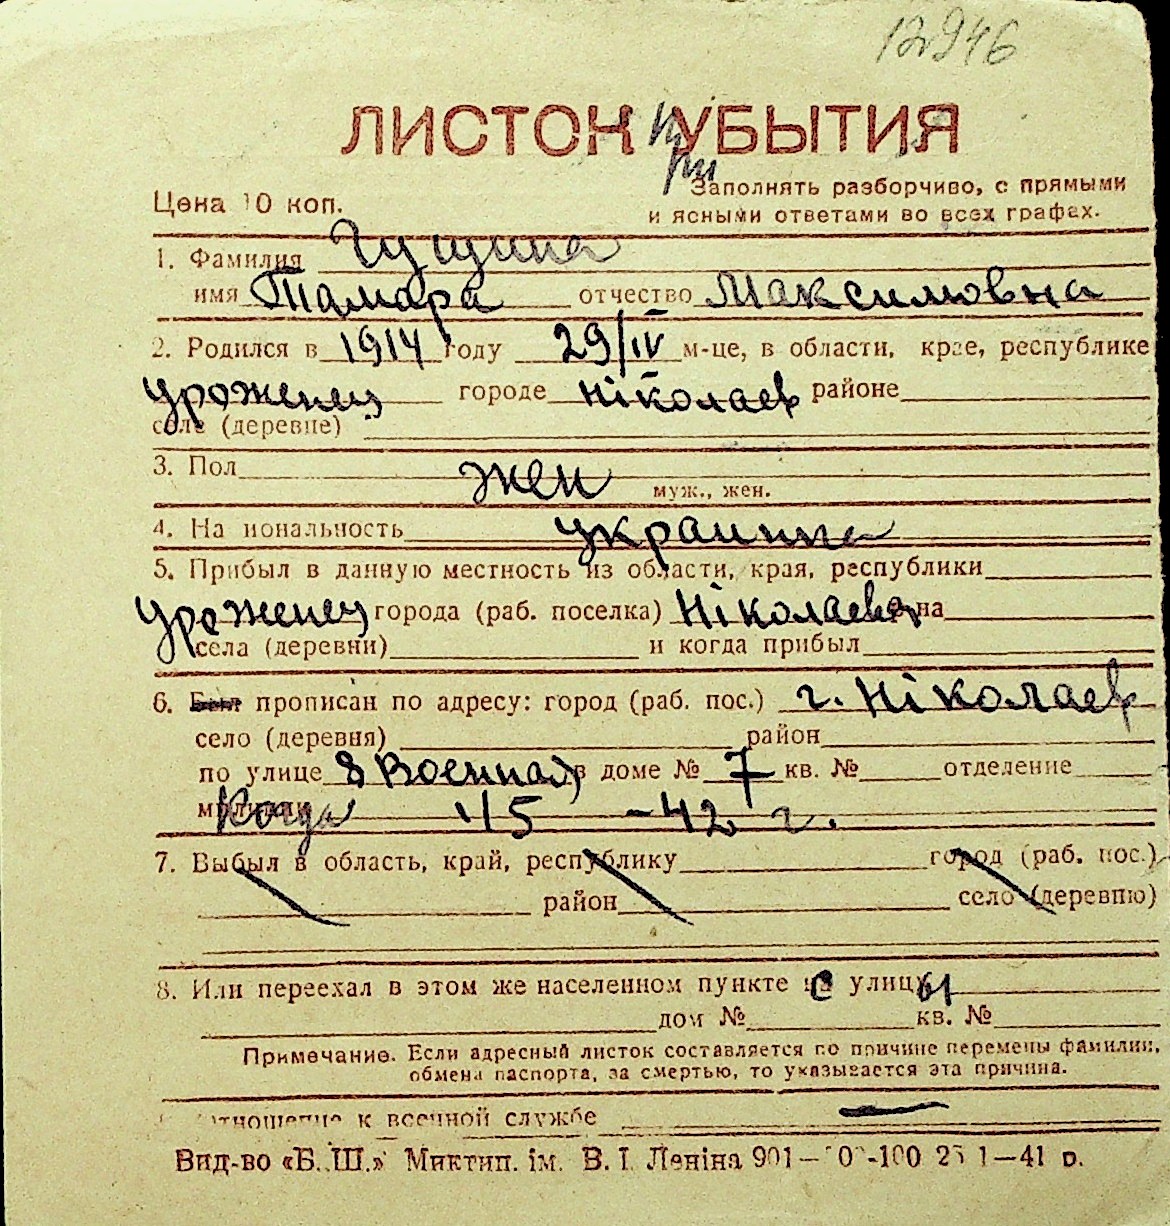 12946
ЛИСТОК УБЫТИЯ
при
Цена 10 коп.
Заполнять разборчиво, с прямыми
и ясными ответами во всех графах.
1. Фамилия Гущина
имя Тамара отчество Максимовна
2. Родился в 1914 году 29/IV м-це, в области, крае, республике
уроженец городе Ніколаев районе
селе (деревне)
3. Пол жен
муж., жен.
4. Национальность украинка
5. Прибыл в данную местность из области, края, республики
уроженец города (раб. поселка) Ніколаева на
села (деревни) и когда прибыл
6. Был прописан по адресу: город (раб. пос.) г. Ніколаев
село (деревня) район
по улице 8 Военная в доме № 7 кв. № отделение
милиции Когда 1/5 - 42 г.
7. Выбыл в область, край, республику город (раб. пос.)
район село (деревню)
8. Или переехал в этом же населенном пункте с улицы
дом № кв. №
Примечание. Если адресный листок составляется по причине перемены фамилии,
обмена паспорта, за смертью, то указывается эта причина.
отношение к военной службе —
Вид-во «Б. Ш.» Миктип. ім. В. І. Леніна 901— 1—41 р.